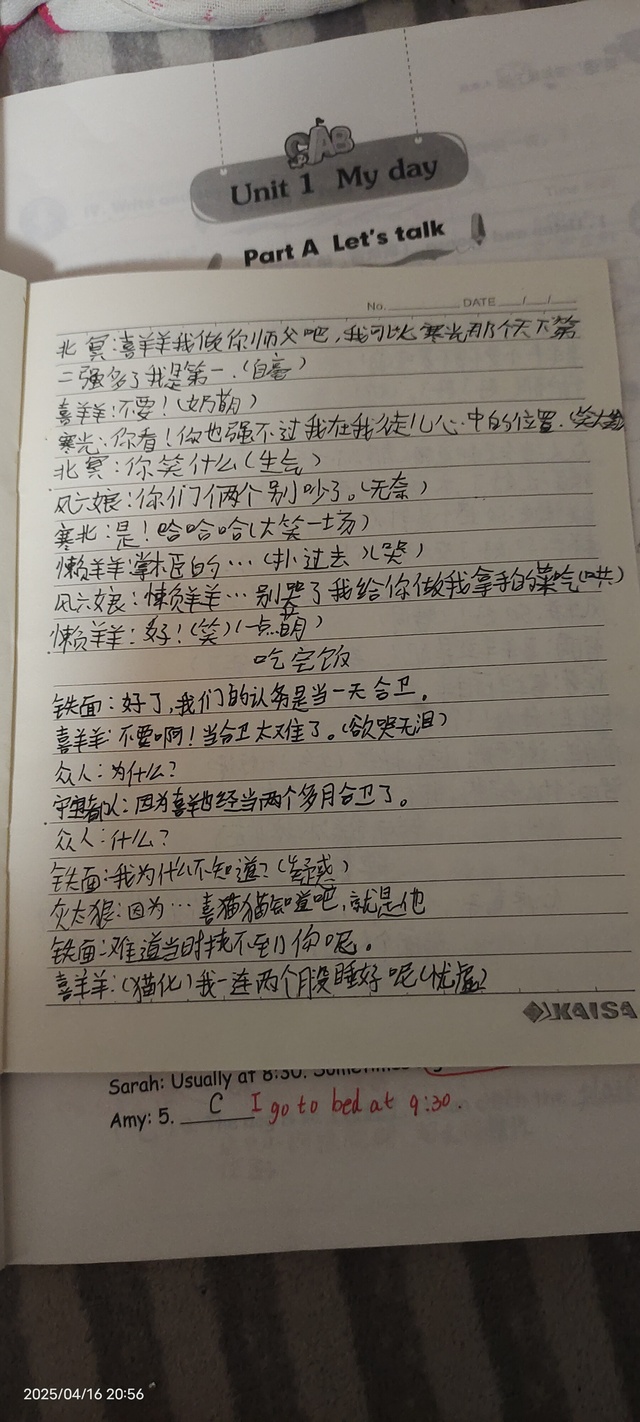 CAB
Unit 1 My day
Part A Let's talk
No. DATE / /
北冥:喜羊羊我做你师父吧,我可比寒光那个天下第
二强多了我是第一.(自
喜羊羊:不要!(奶萌)
寒光:你看!你也强不过我在我徒儿心中的位置.(笑
北冥:你笑什么(生气)
风六娘:你们俩个别吵了。(无奈)
寒北:是!哈哈哈(大笑一场)
懒羊羊:掌柜的…(扑过去)(哭)
风六娘:懒羊羊…别哭了我给你做我拿手的菜吃(哄)
懒羊羊:好!(笑)(一点萌)
吃完饭
铁面:好了,我们的认务是当一天合卫。
喜羊羊:不要啊!当合卫太难了。(欲哭无泪)
众人:为什么?
守:因为喜羊也经当两个多月合卫了。
众人:什么?
铁面:我为什么不知道?(疑惑)
灰太狼:因为…喜猫猫知道吧,就是他
铁面:难道当时找不到你呢。
喜羊羊:(猫化)我一连两个月没睡好呢(忧虑)
KAISA
Sarah: Usually at 8:30. Sometimes
Amy: 5. C I go to bed at 9:30.
2025/04/16 20:56